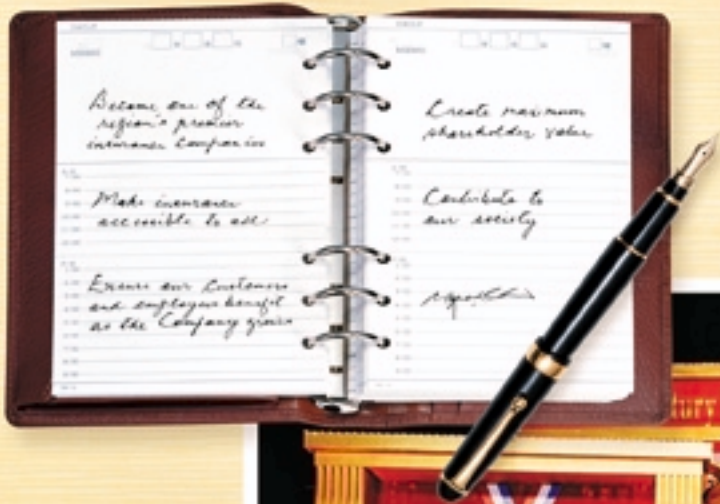 Become one of the
region's premier
insurance companies
Make insurance
accessible to all
Ensure our Customers
and employees benefit
as the Company grows
Create maximum
shareholder value
Contribute to
our society
tury